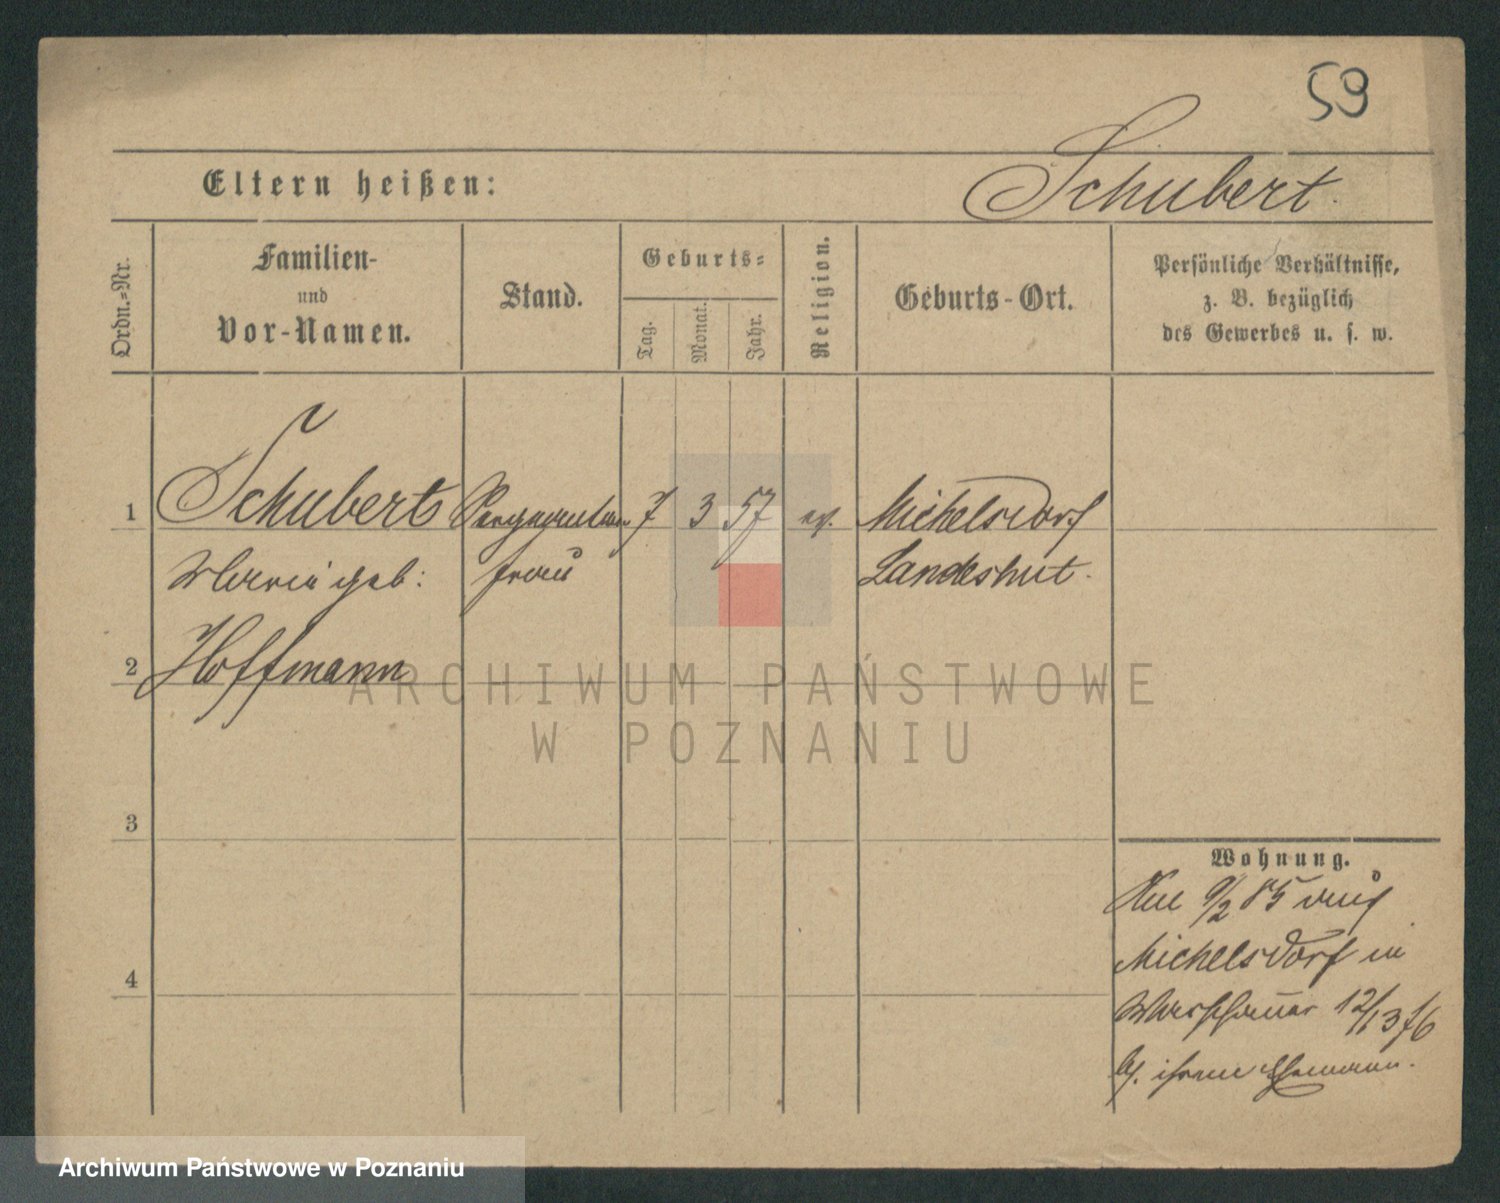 59
Eltern heißen:
Schubert.
Ordn.-Nr.
Familien-
und
Vor-Namen.
Stand.
Geburts-
Tag.
Monat.
Jahr.
Religion.
Geburts-Ort.
Persönliche Verhältnisse,
z. B. bezüglich
des Gewerbes u. s. w.
1 Schubert 7 3 57 ev. Michelsdorf
Marie geb: frau Landeshut.
2 Hoffmann
3
Wohnung.
9/2 85 aus
Michelsdorf in
4
Warschauer 12/13
b. ihrem Ehemann.
ARCHIWUM PAŃSTWOWE
W POZNANIU
Archiwum Państwowe w Poznaniu